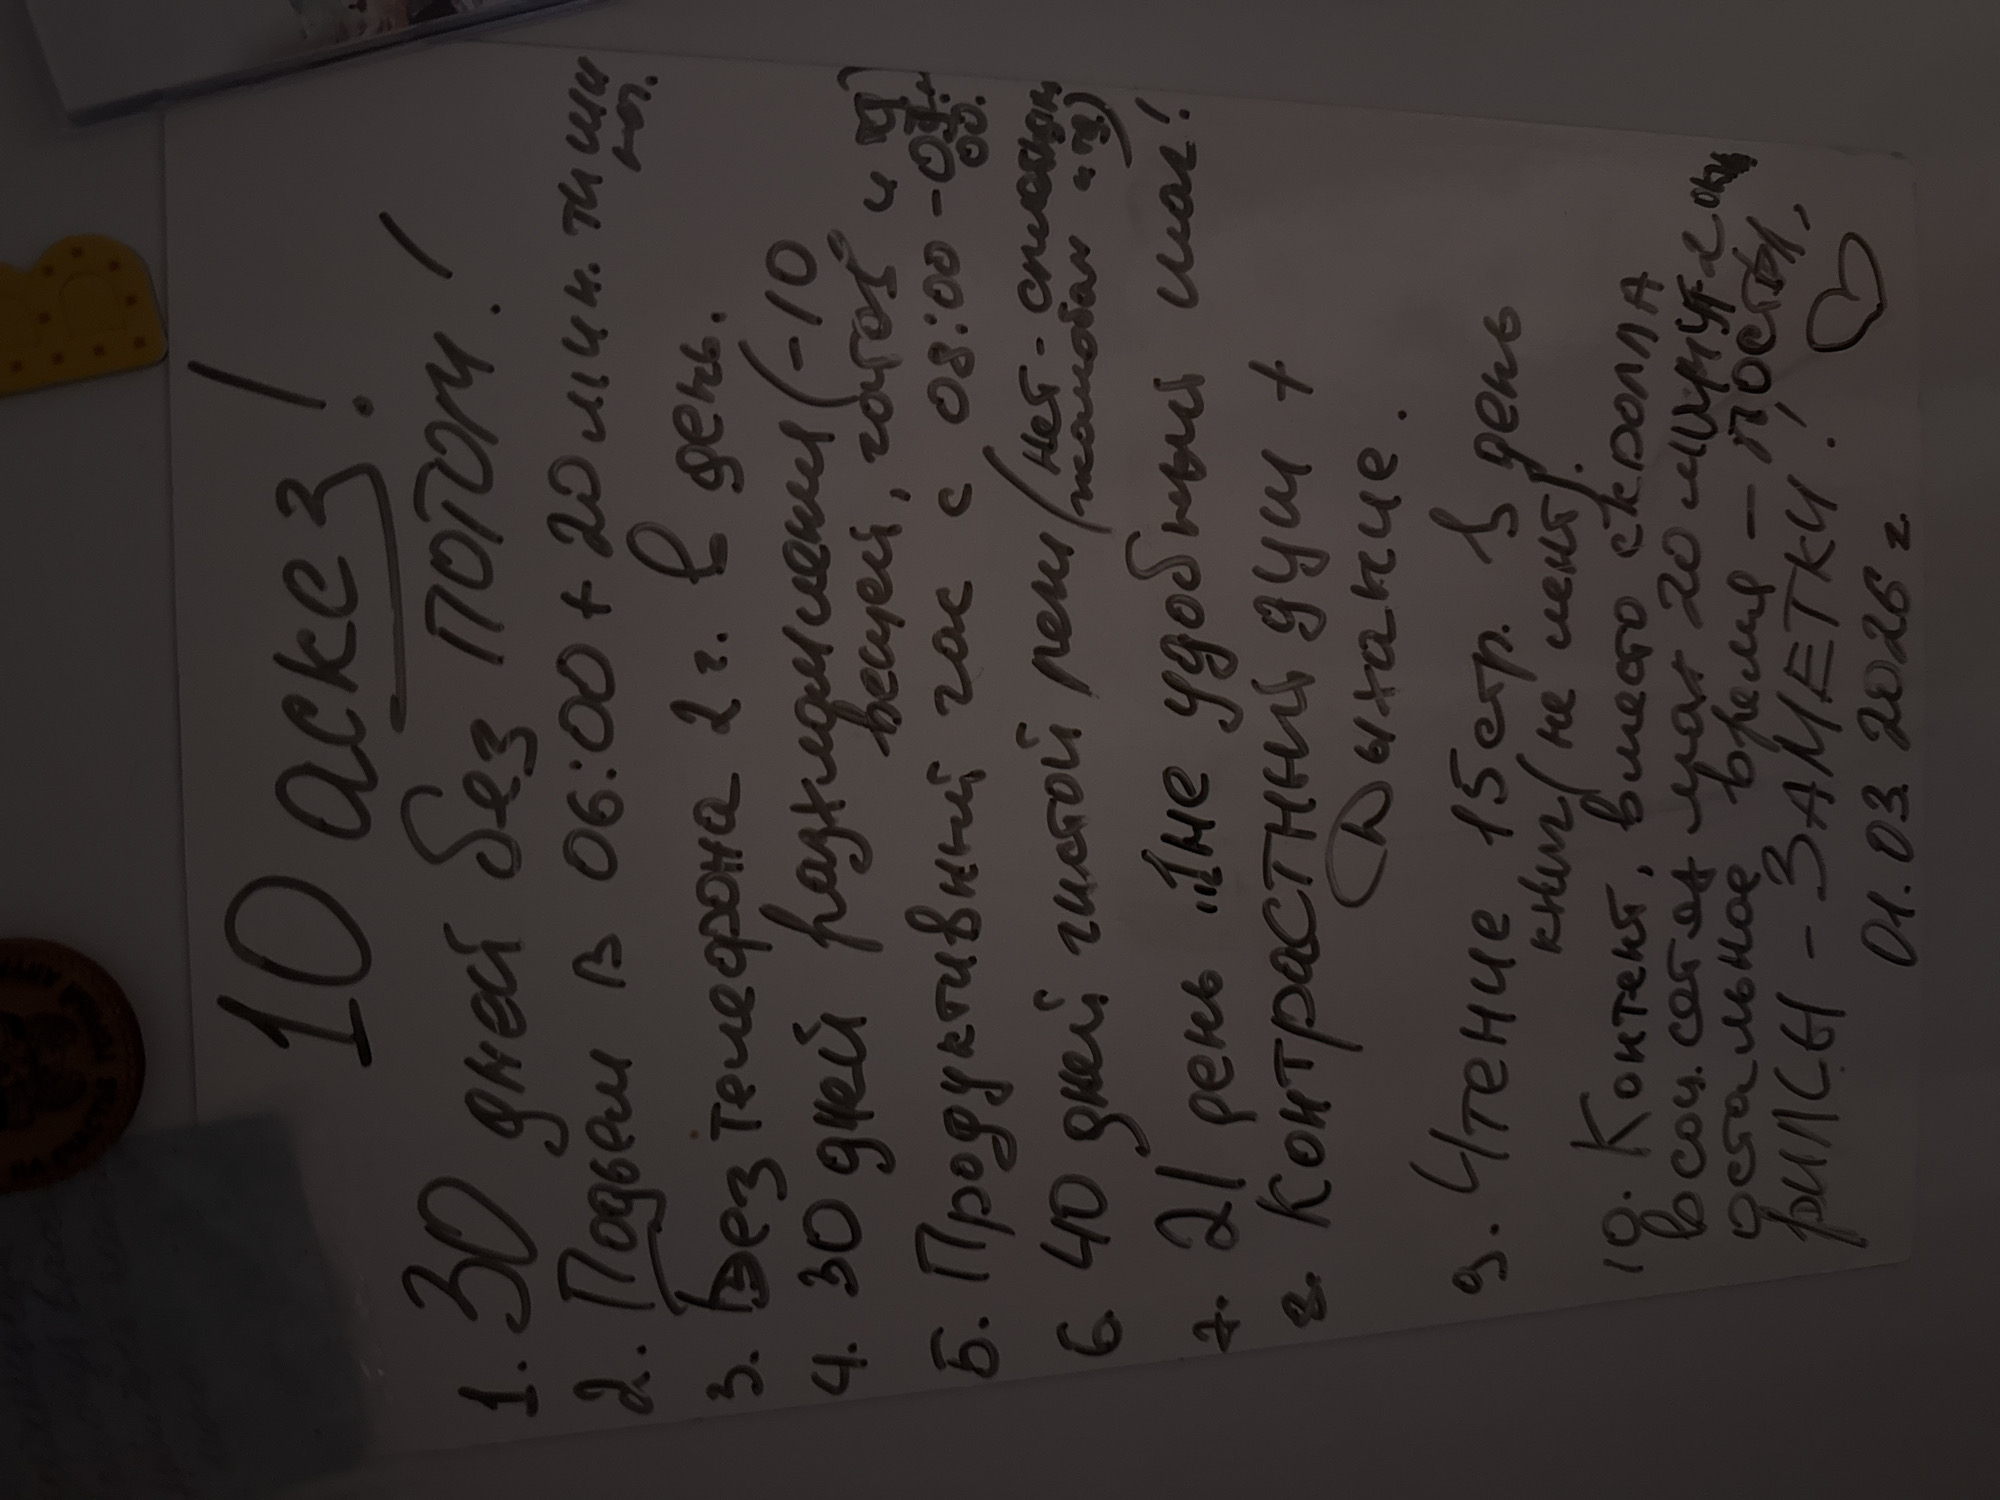 10 аскез!
1. 30 дней без ПОТОМ!
2. Подъем в 06:00 + 20 мин. тиши
ны.
3. Без телефона 2 ч. в день.
4. 30 дней расхламления (-10
вещей, готов и
5. Продуктивный час с 08:00 - 09:
00.
6. 40 дней чистой речи (нет - сплетням
жалобам и тд)
7. 21 день "1 не удобный шаг!
8. КОНТРАСТНЫЙ ДУШ +
Дыхание.
9. Чтение 15 стр. в день
книг (не лент).
10. Контент, вместо скролла
в соц. сетях max 20 минут
остальное время - ПОСТЫ,
РИЛСЫ - ЗАМЕТКИ!
01.03.2026 г